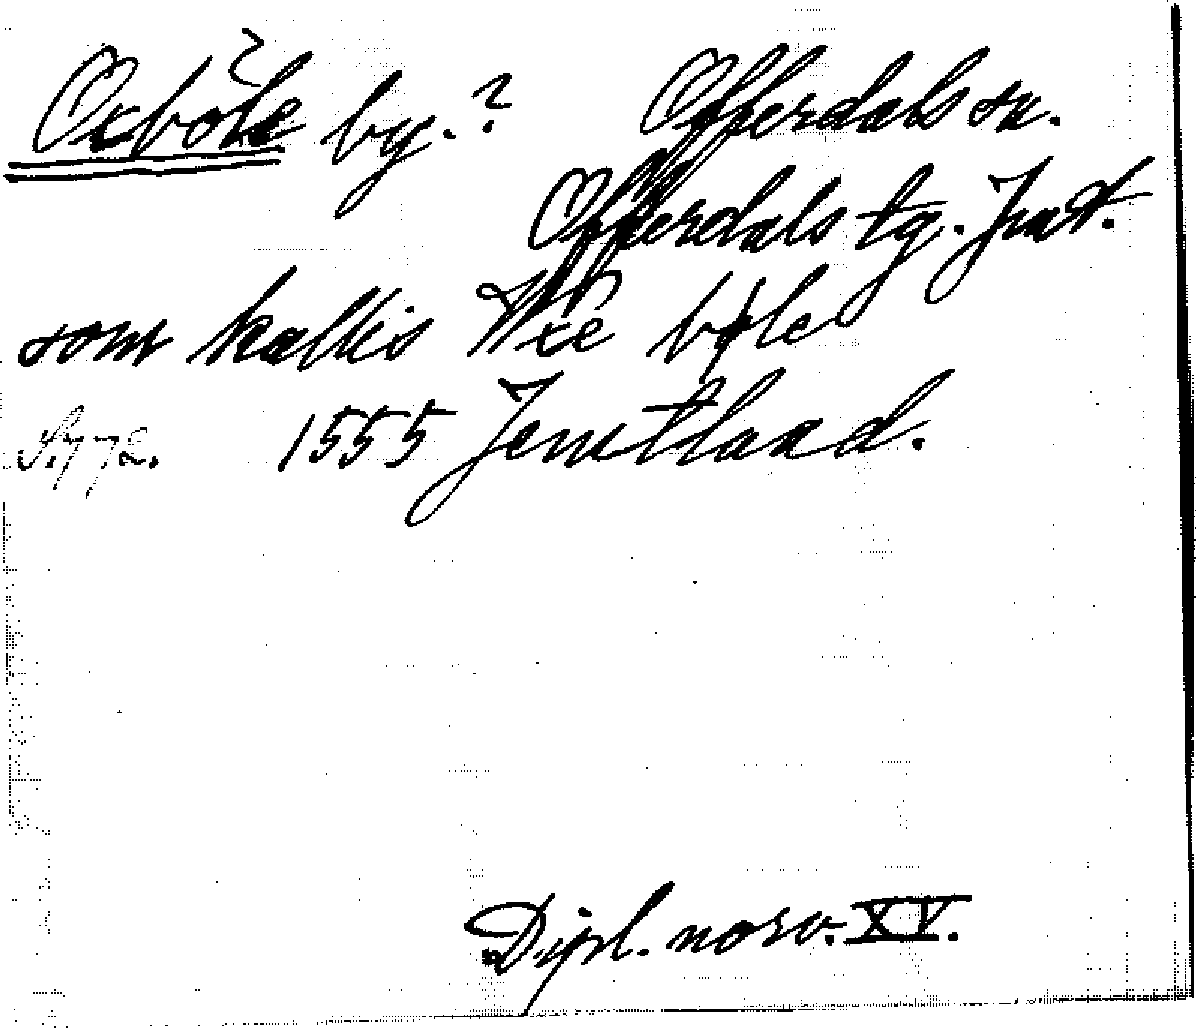 Oxböle by.? Offerdals sn.
Offerdals tg. Jmt.
som kallis Wxe bøle
S. 772. 1555 Jemtland.
Dipl. norv. XV.